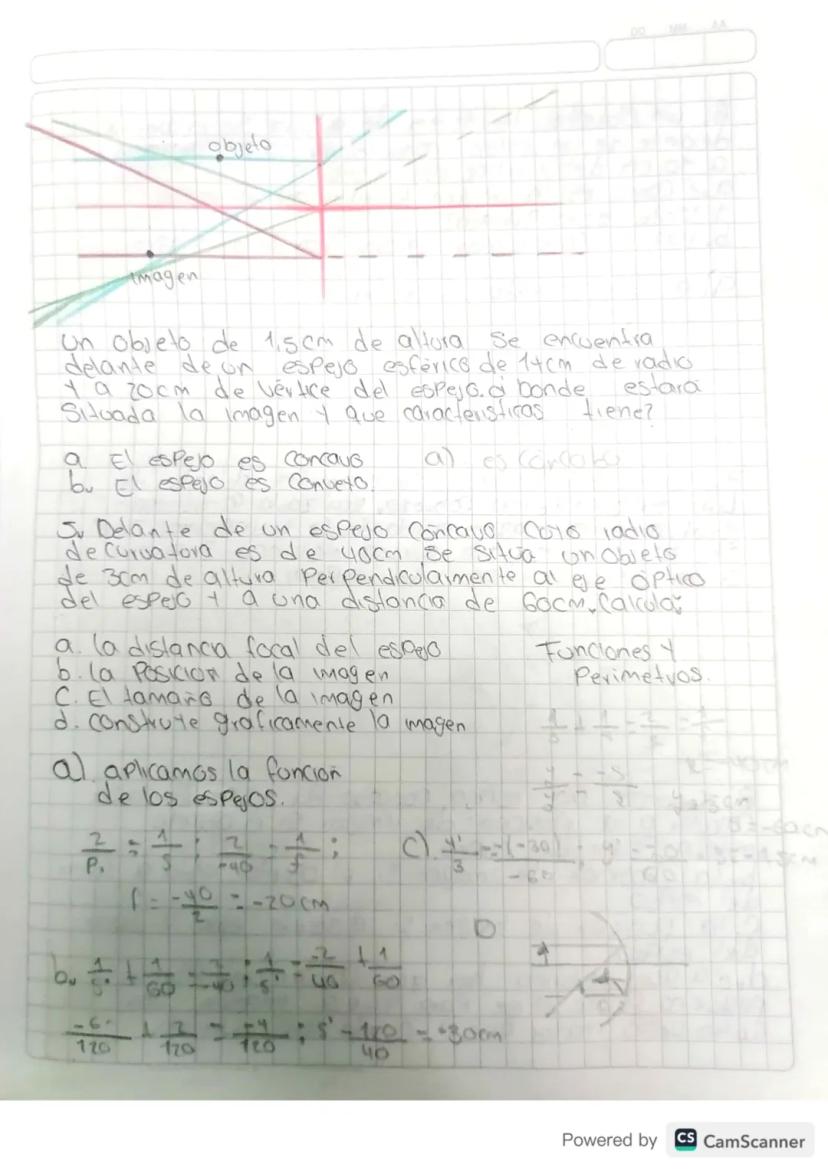 DD MM AA
objeto
imagen
Un objeto de 1,5cm de altura se encuentra
delante de un espejo esférico de 14cm de radio
y a 20cm de vértice del espejo. ó bonde estará
Situada la imagen y que características tiene?
a El espejo es concavo a) es
b. El espejo es convexo.
5. Delante de un espejo concavo cuyo radio
de curvatura es de 40cm se situa un Objeto
de 3cm de altura Perpendicularmente al eje óptico
del espejo y a una distancia de 60cm. Calcula:
a. la distancia focal del espejo
b. la Posicion de la imagen
C. El tamaño de la imagen
d. construye graficamente la imagen
Funciones y
Perimetros.
a). aplicamos la funcion
de los espejos.
2/P. = 1/s ; 2/-40 = 1/f ;
f = -40/2 = -20cm
C). y'/3 = -(-30)/-60 ;
b. 1/s' + 1/60 = 2/-40 ; 1/s' = -2/40 + 1/60
-6/120 + 2/120 = -4/120 ; s' - 120/40 = -30cm
Powered by CS CamScanner